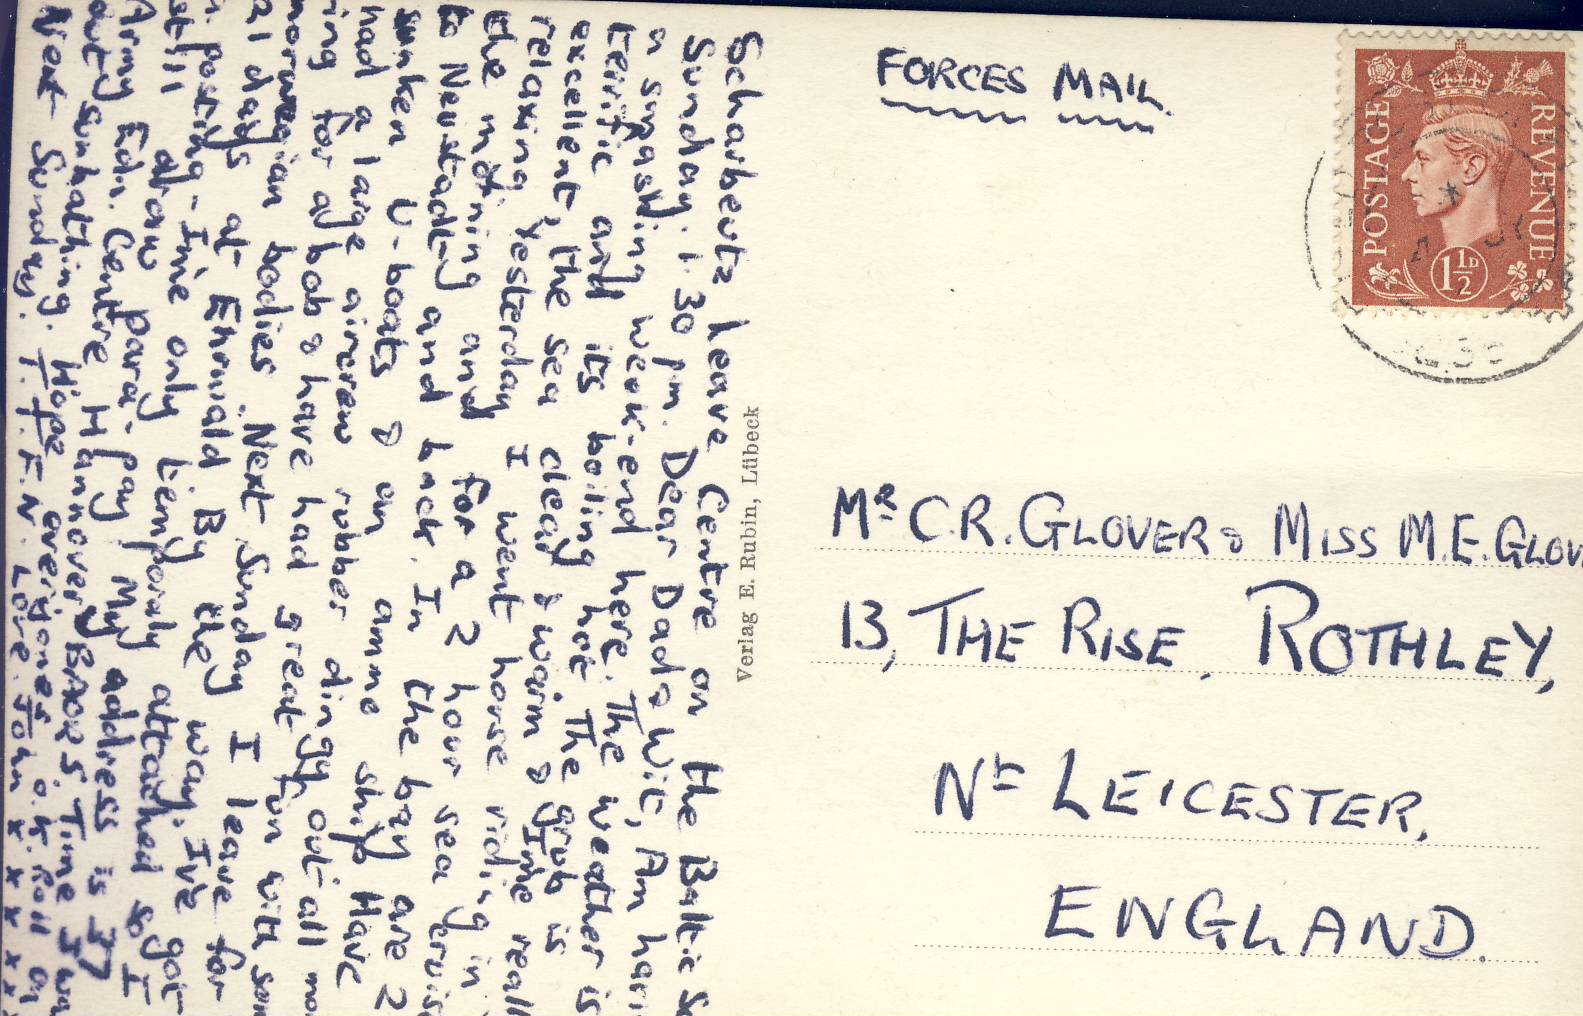 Scharbeutz Leave Centre on the Baltic
Sunday. 1.30 pm. Dear Dad & Wit, Am
a smashing week-end here. The weather is
terrific and its boiling hot. The grub is
excellent, the sea clear & warm & I'me
relaxing. Yesterday I went horse riding in
the morning and for a 2 hour sea
to Neustadt and back. In the bay are 2
sunken U-boats & an amme ship Have
had a large aircrew rubber dingy out all
ing for a bob & have had great fun with
norwegian bodies. Next Sunday I leave for
21 days at Ehrwald By the way. I've got
posting - Ime only temporaly attached so I
still draw para-pay My address is 37
Army Edn. Centre Hannover BAOR 5. Time I
out sunbathing. Hope everyones o.k. Roll on
Next Sunday. T.T.F.N. Love. John x x x x x
Verlag E. Rubin, Lübeck
FORCES MAIL.
POSTAGE
REVENUE
1½D
Mr C.R. GLOVER & MISS M.E. GLOV
13, THE RISE, ROTHLEY,
Nr LEICESTER,
ENGLAND.